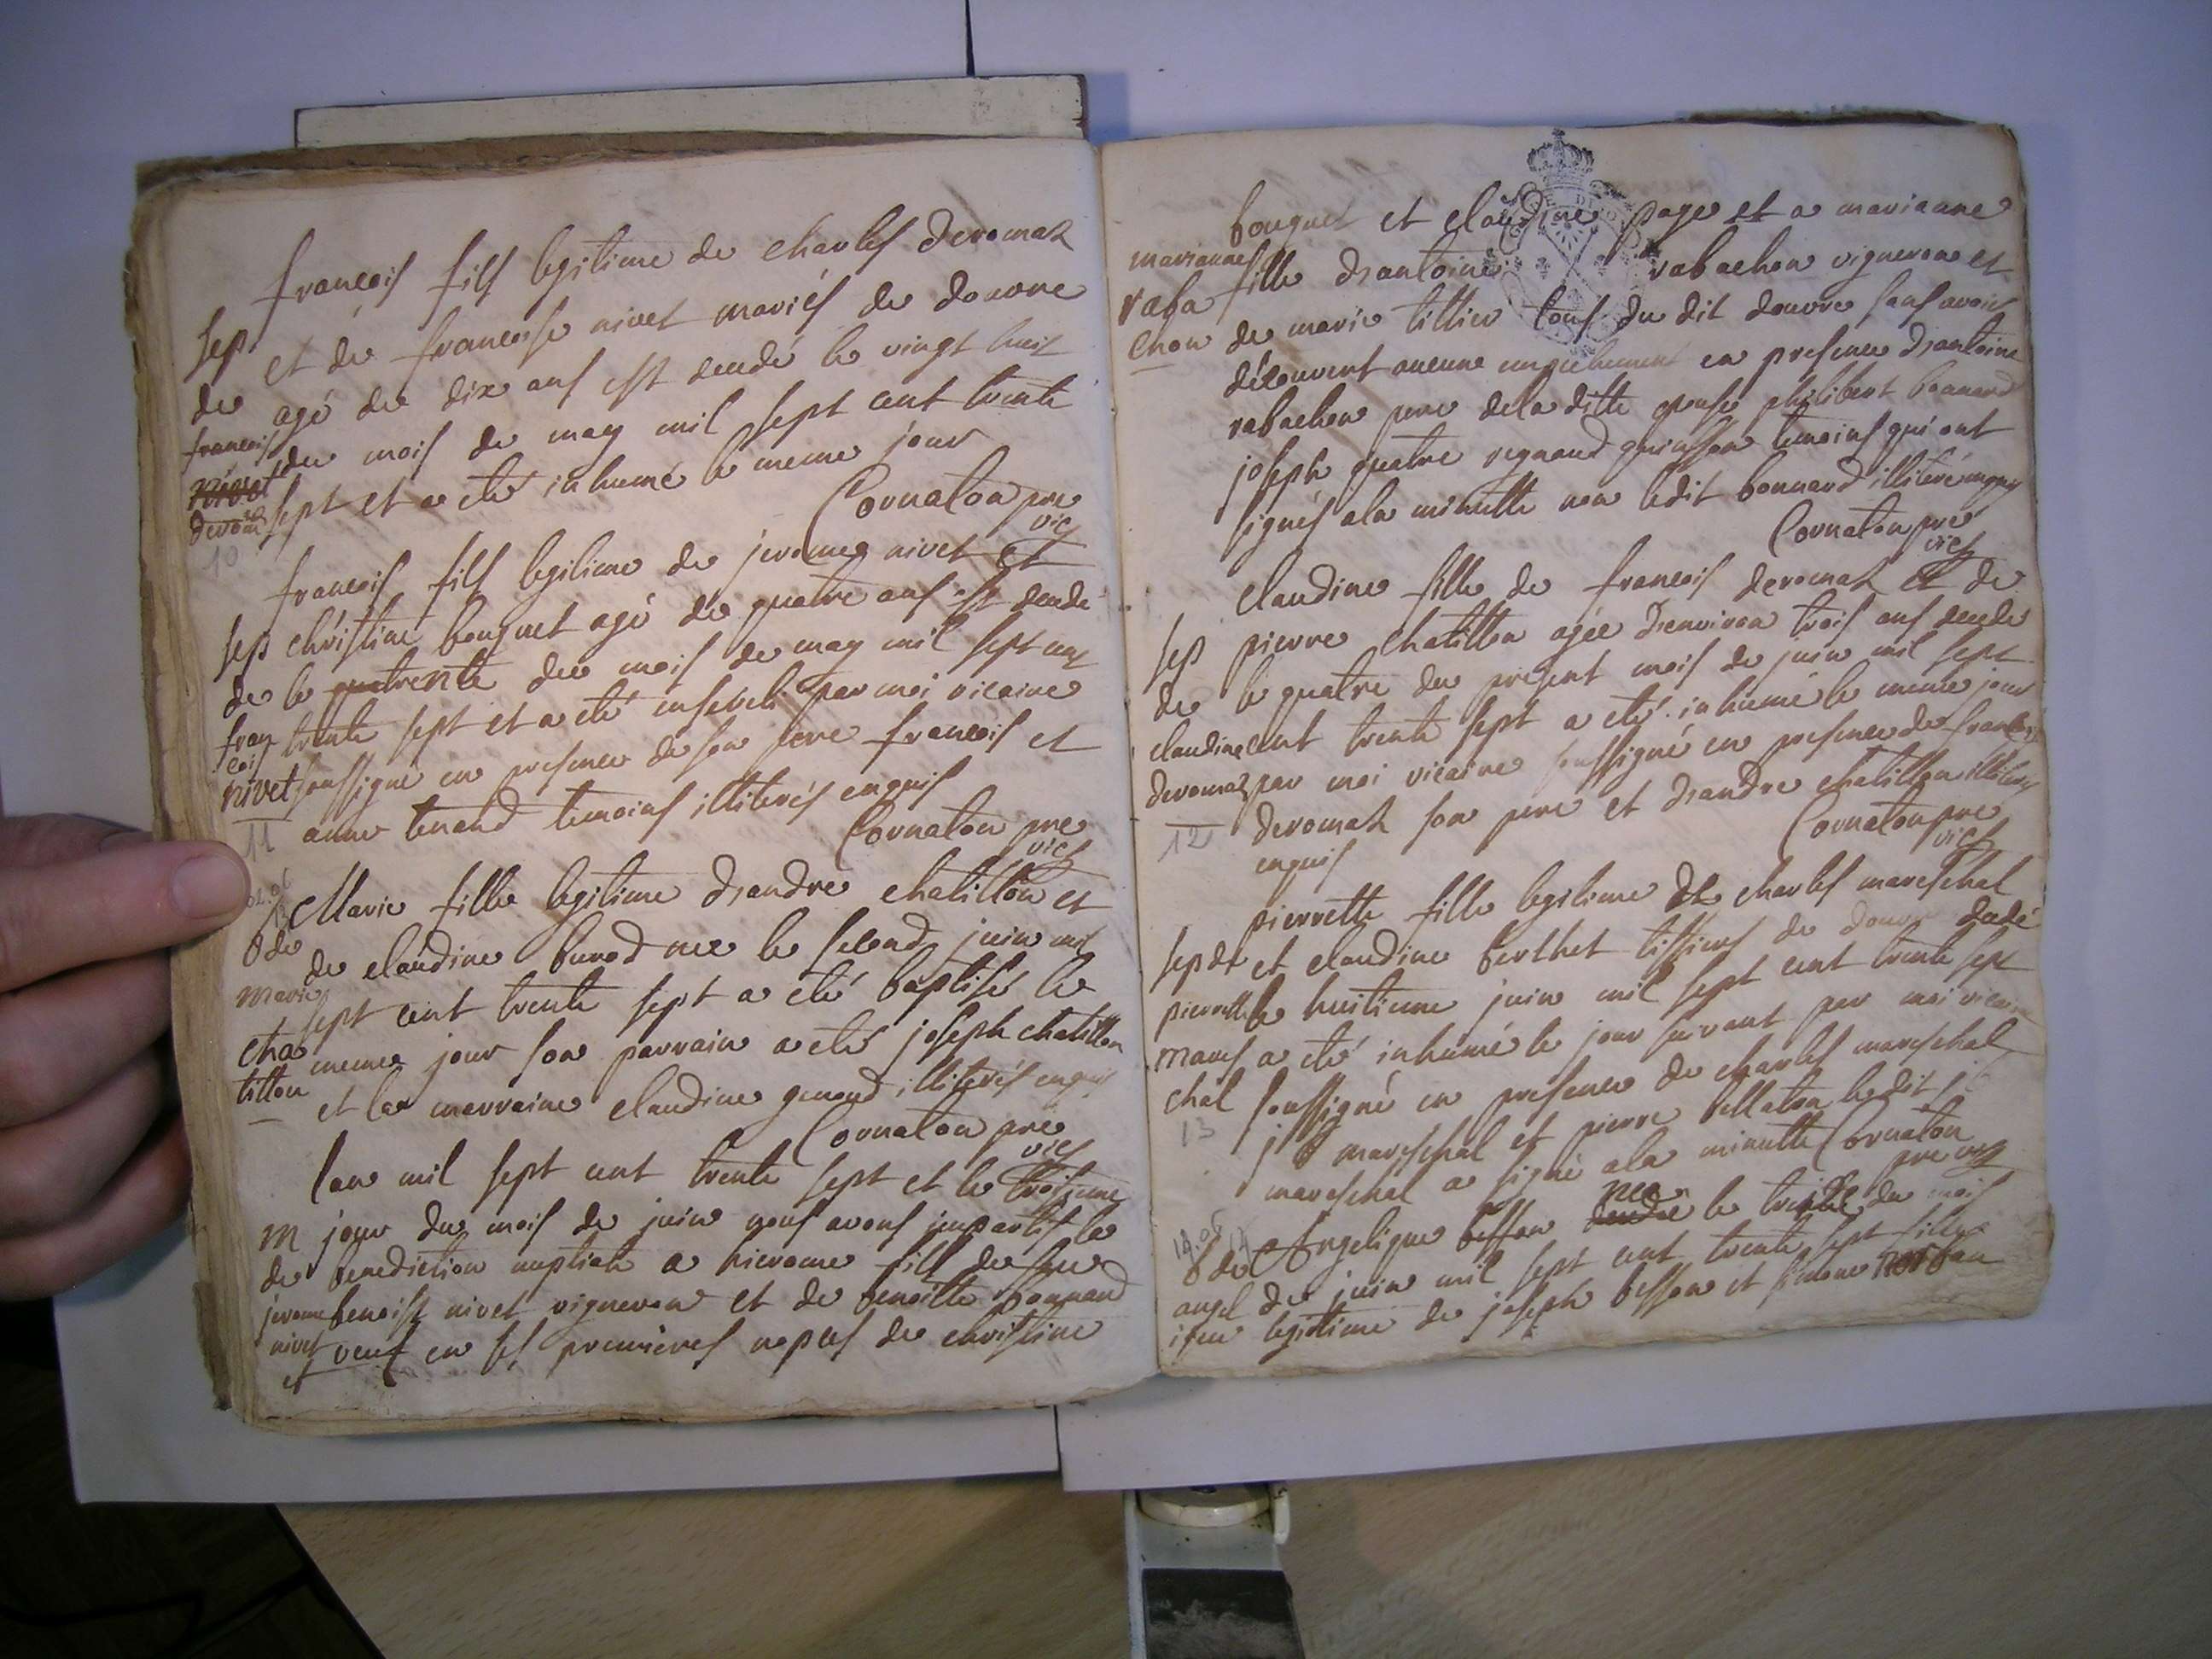 francois fils legitime de charles deromas
sep et de francoise nivet mariés de douvre
de agé de dix ans est decedé le vingt huit
francois du mois de may mil sept cent trente
nivet sept et a eté inhumé le meme jour
deromas Cornaton pre
10 vic
francois fils legitime de jerome nivet et
sep christine bouquet agé de quatre ans est decedé
de le trente du mois de may mil sept cent
fran trente sept et a eté enseveli par moi vicaire
cois
nivet soussigné en presence de son pere francois et
11 anne tenand temoins illiterés enquis
Cornaton pre
vic
Marie fille legitime d'andré chatillon et
B de de claudine bunod nee le second juin mil
marie sept cent trente sept a eté baptisé le
cha meme jour son parrain a eté joseph chatillon
tillon et la marraine claudine genoud illiterés enquis
Cornaton pre
vic
lan mil sept cent trente sept et le troisieme
m jour du mois de juin nous avons impartis la
de benediction nuptiale a hierome fils de feu
jerome benoist nivet vigneron et de benoitte bonnand
nivet veuf en ses premieres nopces de christine
et
bouquet et claudine page et a marianne
marianne fille d'antoine rabachon vigneron et
raba de marie tillier tous du dit douvre sans avoir
chon découvert aucune empechement en presence d'antoine
rabachon pere de la ditte epouse philibert bonnard
joseph quatre reynaud guinsson temoins qui ont
signés a la minutte non ledit bonnard illiteré enquis
Cornaton pre
vic
claudine fille de francois deromas et de
sep pierre chatillon agée d'environ trois ans decedée
de le quatre du present mois de juin mil sept
claudine cent trente sept a eté inhumé le meme jour
deromas par moi vicaire soussigné en presence de francois
12 deromas son pere et d'andre chatillon illiterés
enquis Cornaton pre
vic
pierrette fille legitime de charles mareschal
sep de et claudine berthet tissiers de douvre decedé
pierrette le huitieme juin mil sept cent trente sept
mares a eté inhumé le jour suivant par moi vicaire
chal soussigné en presence de charles mareschal
13 j B mareschal et pierre bellaton ledit j B
mareschal a signé a la minutte Cornaton
pre vic
nee
B de Angelique besson decedee le treize du mois
angel de juin mil sept cent trente sept fille
ique legitime de joseph besson et simone